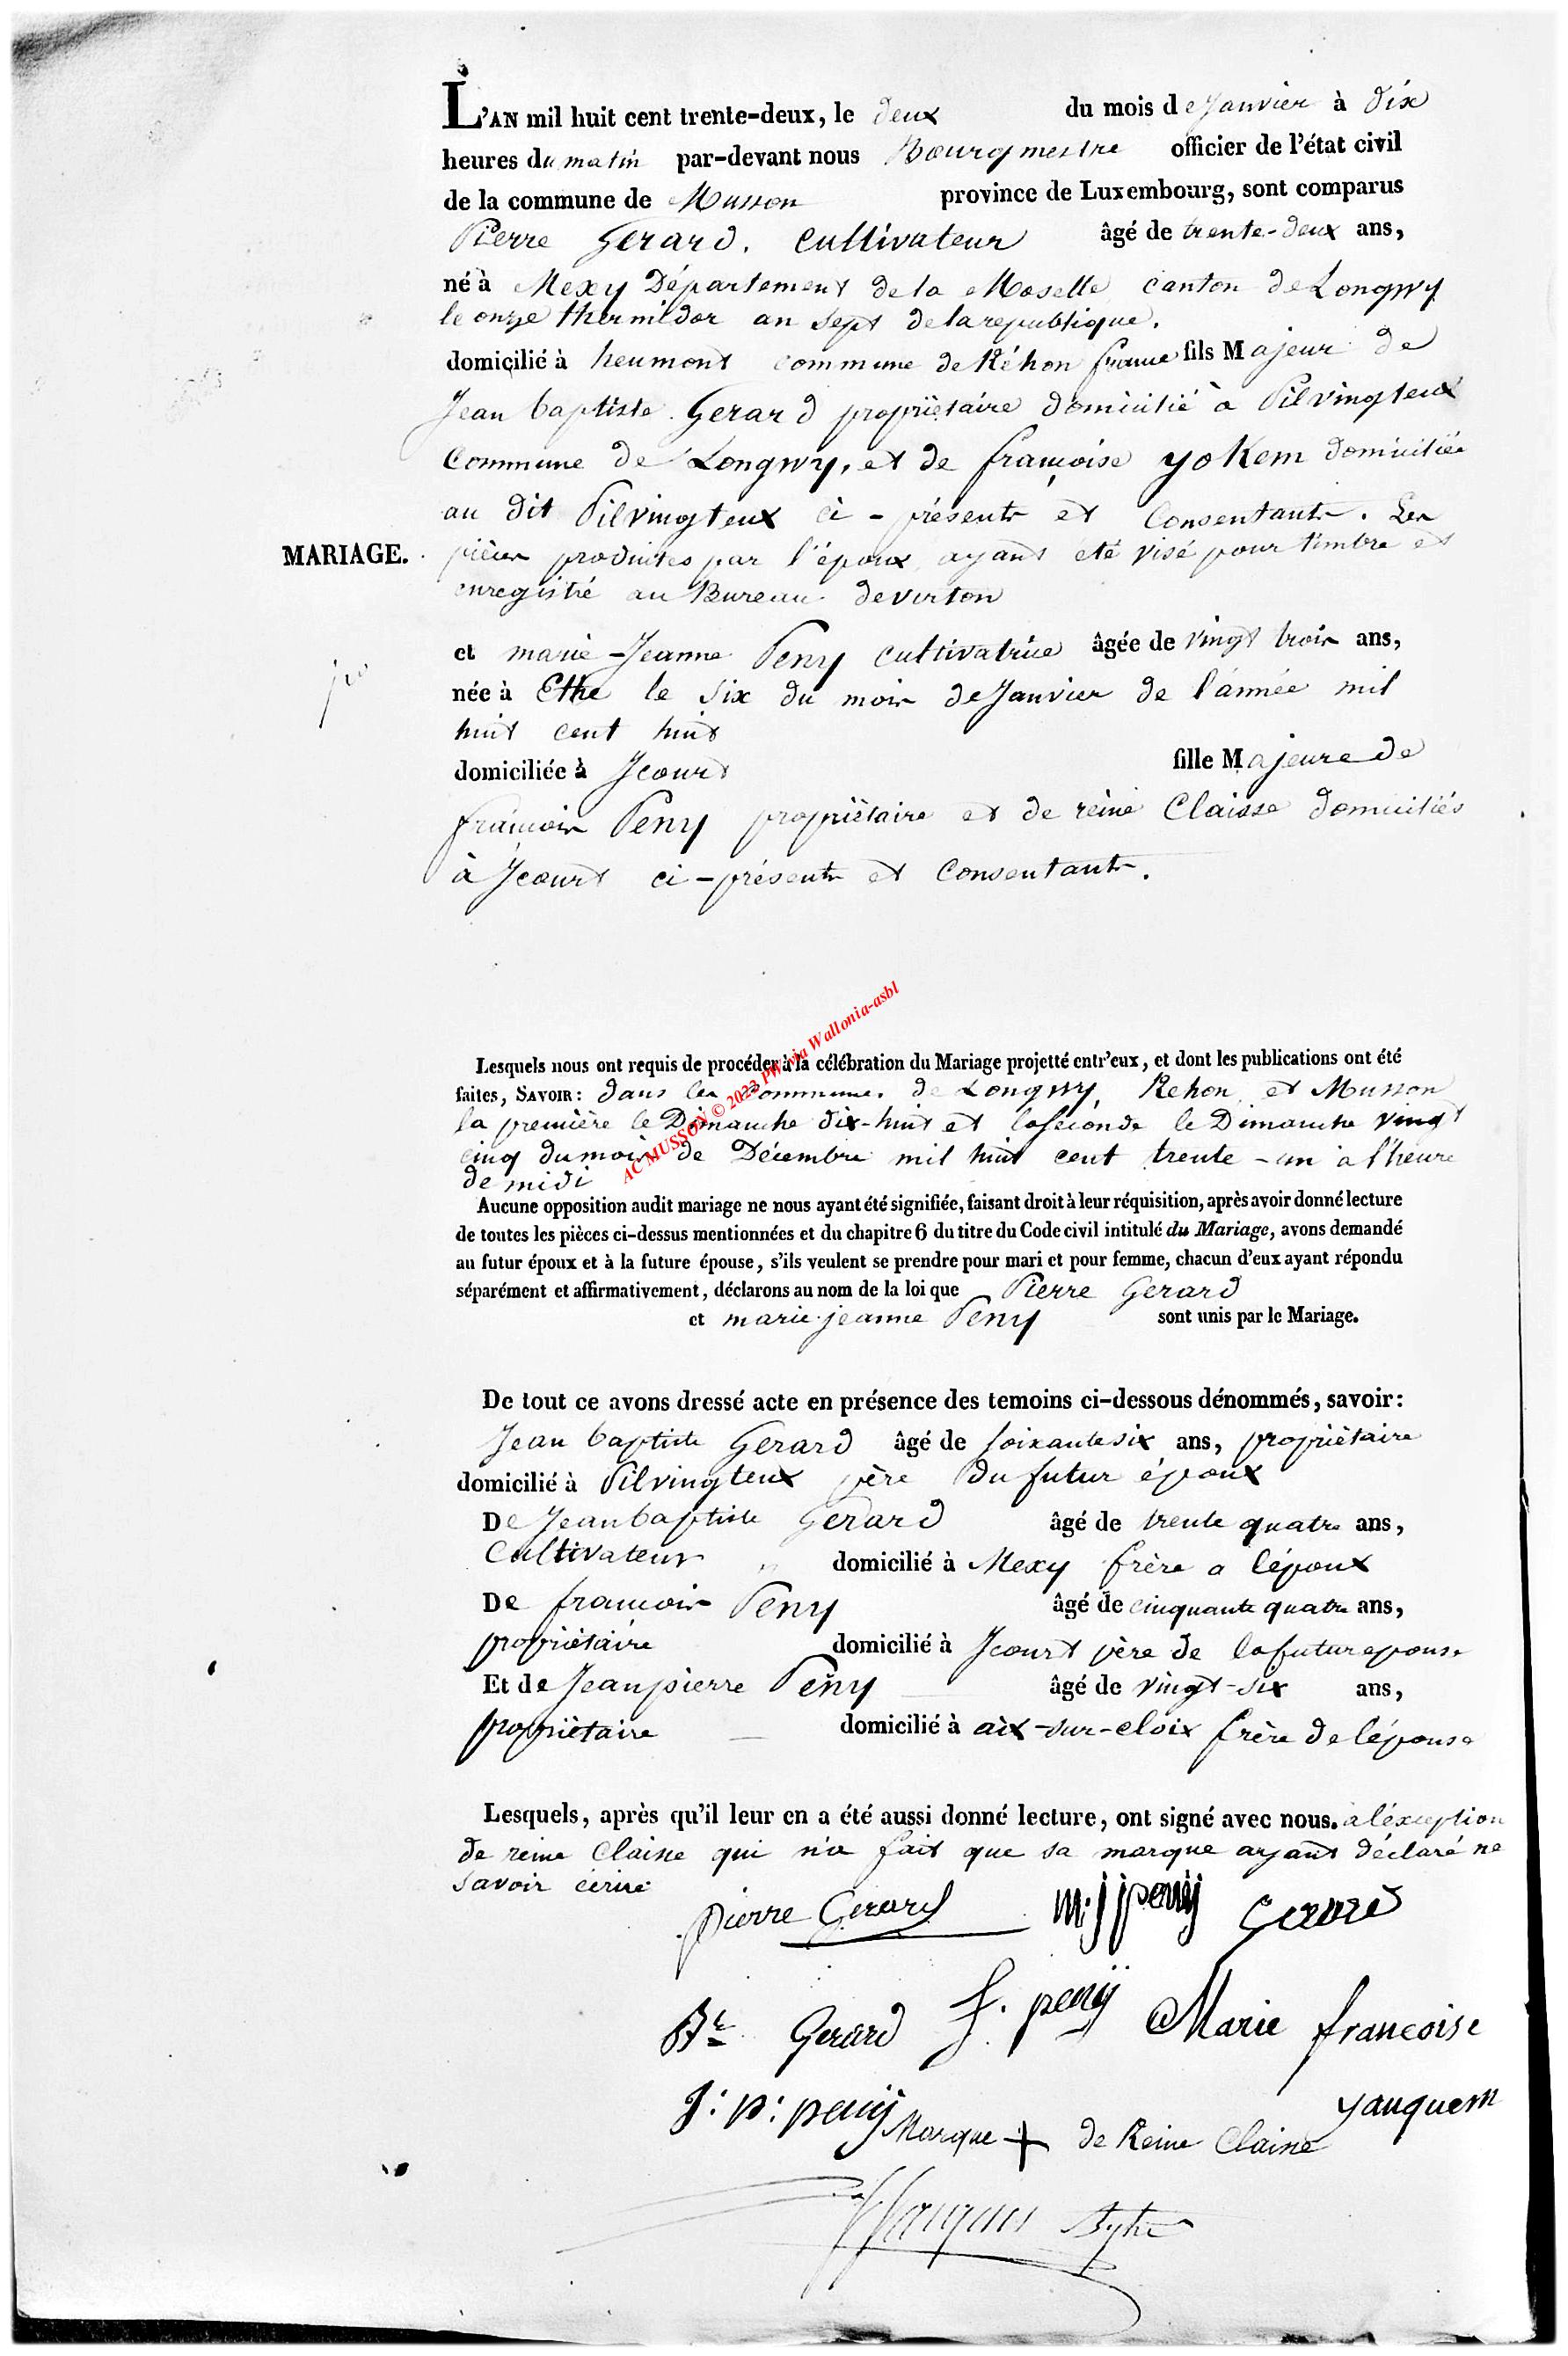 L'AN mil huit cent trente-deux, le deux du mois de Janvier à dix
heures du matin par-devant nous Bourgmestre officier de l'état civil
de la commune de Musson province de Luxembourg, sont comparus
Pierre Gerard. Cultivateur âgé de trente-deux ans,
né à Mexy Département de la Moselle canton de Longwy
le onze thermidor an sept de la republique.
domicilié à heumont commune de Réhon france fils Majeur de
Jean baptiste Gerard propriétaire domicilié à Pilvingteux
Commune de Longwy, et de françoise yoKem domiciliée
au dit Pilvingteux ci-présents et Consentants. Les
MARIAGE. pièces produites par l'époux ayant eté visé pour timbre et
enregistré au Bureau de virton
et marie-Jeanne Peny cultivatrice âgée de vingt trois ans,
née à Ethe le six du mois de Janvier de l'année mil
huit cent huit
domiciliée à Jcourt fille Majeure de
françois Peny propriètaire et de reine Claisse domiciliés
à Jcourt ci-présents et Consentants.
AC MUSSON © 2023 PW via Wallonia-asbl
Lesquels nous ont requis de procéder à la célébration du Mariage projetté entr'eux, et dont les publications ont été
faites, SAVOIR: dans les Communes de Longwy, Rehon et Musson
la première le Dimanche dix-huit et la seconde le Dimanche vingt
cinq du mois de Décembre mil huit cent trente-un a l'heure
de midi
Aucune opposition audit mariage ne nous ayant été signifiée, faisant droit à leur réquisition, après avoir donné lecture
de toutes les pièces ci-dessus mentionnées et du chapitre 6 du titre du Code civil intitulé du Mariage, avons demandé
au futur époux et à la future épouse, s'ils veulent se prendre pour mari et pour femme, chacun d'eux ayant répondu
séparément et affirmativement, déclarons au nom de la loi que Pierre Gerard
et marie jeanne Peny sont unis par le Mariage.
De tout ce avons dressé acte en présence des temoins ci-dessous dénommés, savoir:
Jean baptiste Gerard âgé de soixante six ans, propriètaire
domicilié à Pilvingteux père du futur époux
De Jean baptiste Gerard âgé de trente quatre ans,
Cultivateur domicilié à Mexy frère a l'époux
De francois Peny âgé de cinquante quatre ans,
propriétaire domicilié à Jcourt père de la futur epouse
Et de Jean pierre Peny âgé de vingt-six ans,
propriètaire domicilié à aix-sur-cloix frère de l'épouse
Lesquels, après qu'il leur en a été aussi donné lecture, ont signé avec nous. a l'éxception
de reine Claisse qui n'a fait que sa marque ayant déclaré ne
savoir écrire
pierre Gerard m: j peny Gerard
Bte Gerard f. peny Marie francoise
J: p: peny yauquem
Marque + de Reine Claisse